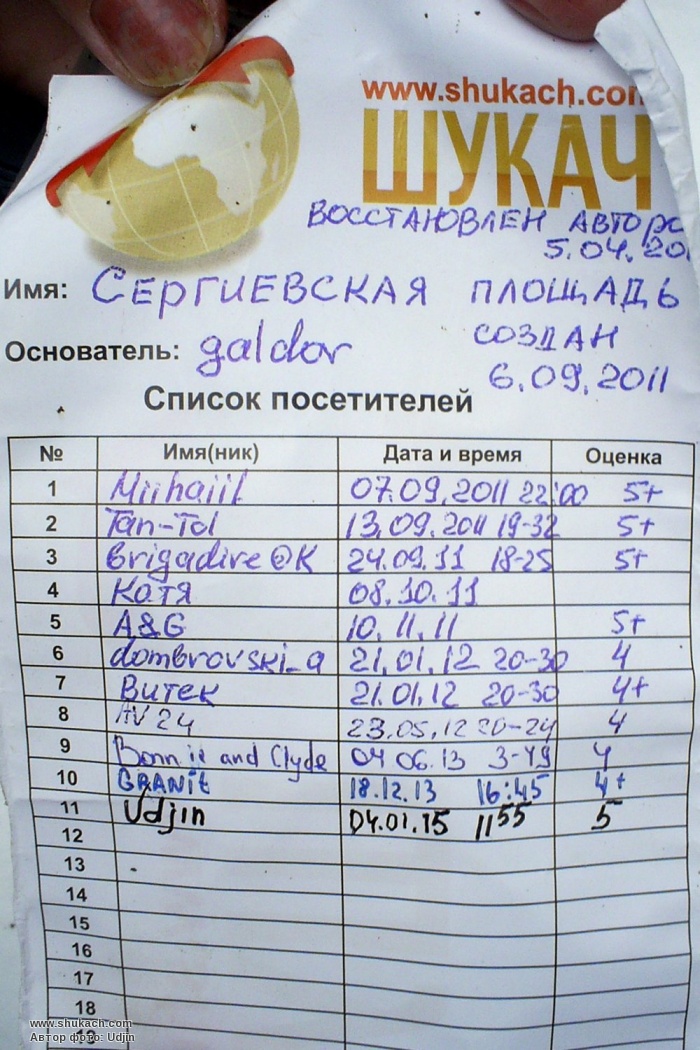 www.shukach.com
ШУКАЧ
ВОССТАНОВЛЕН
5.04.20
Имя: СЕРГИЕВСКАЯ ПЛОЩАДЬ
Основатель: galdor СОЗДАН
6.09.2011
Список посетителей
№ Имя(ник) Дата и время Оценка
1 Miihaiil 07.09.2011 22:00 5+
2 Tan-Tol 13.09.2011 19-32 5+
3 Brigadire@K 24.09.11 18-25 5+
4 Котя 08.10.11
5 A&G 10.11.11 5+
6 dombrovski_a 21.01.12 20-30 4
7 Витек 21.01.12 20-30 4+
8 AV 24 23.05.12 20-24 4
9 Bonnie and Clyde 04 06.13 3-49 4
10 GRANit 18.12.13 16:45 4+
11 Udjin 04.01.15 11 55 5
12
13
14
15
16
17
18
19
www.shukach.com
Автор фото: Udjin